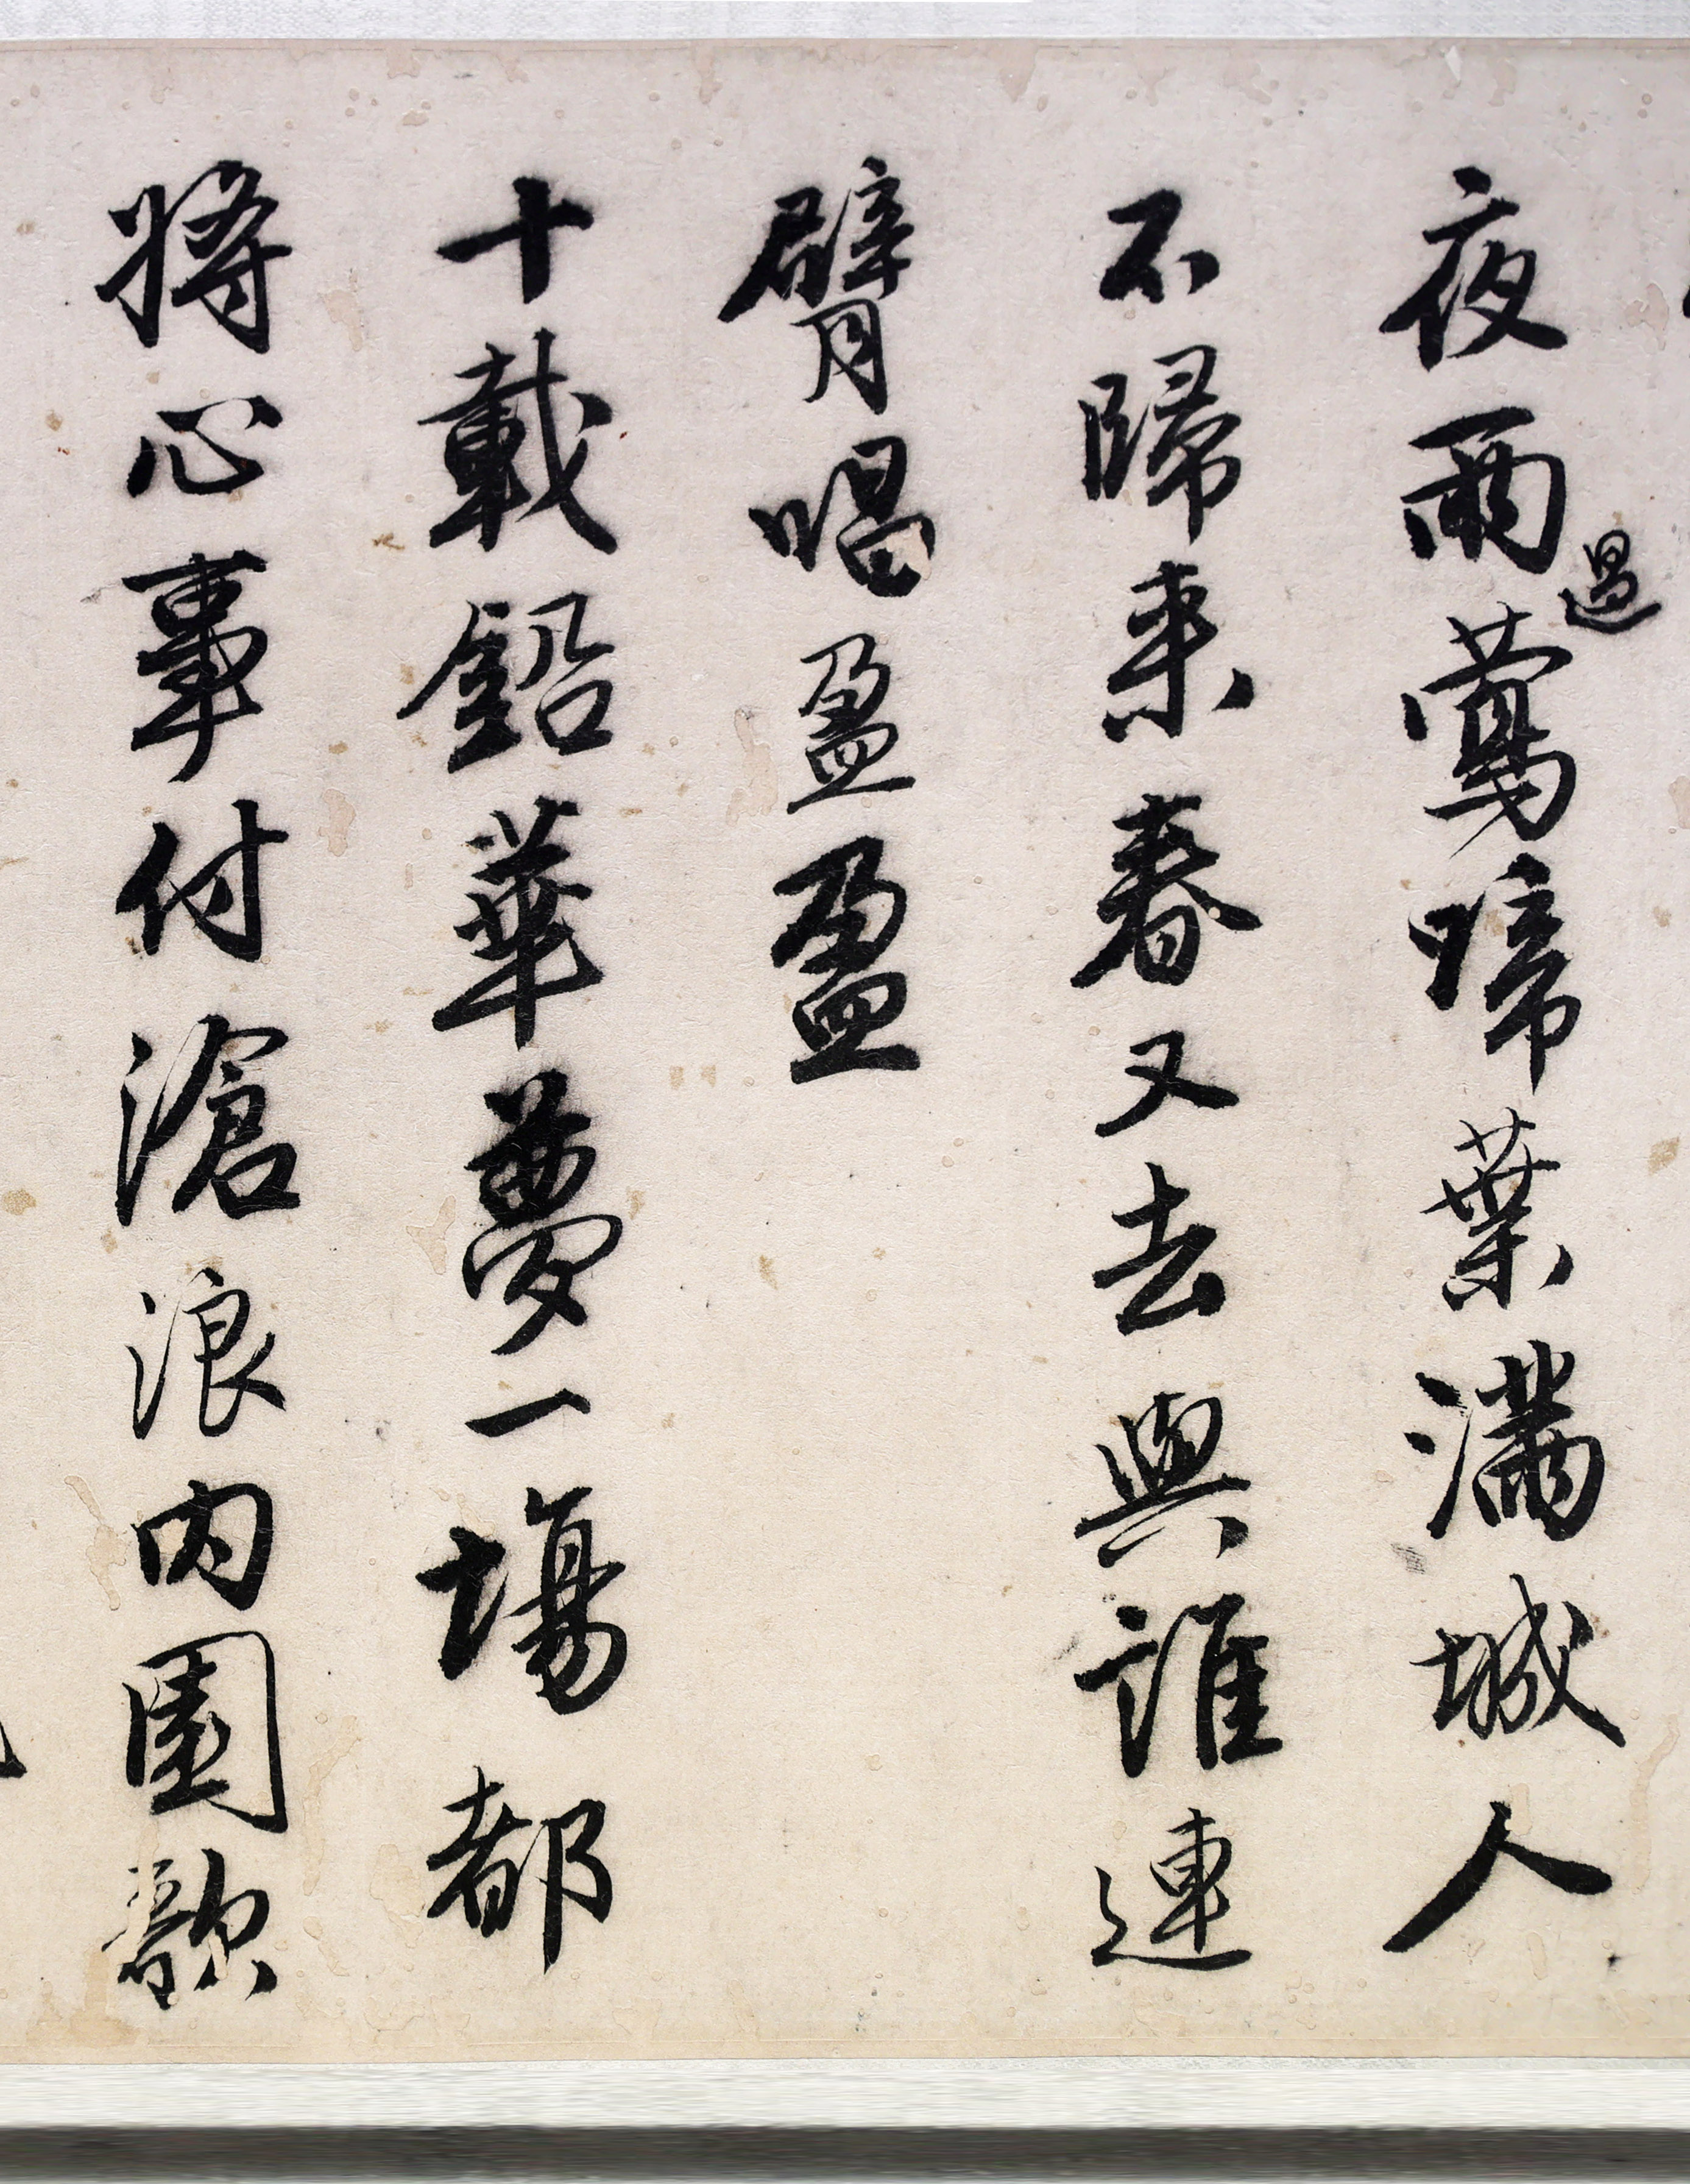 夜雨過鶯啼葉滿城人
不歸来春又去與誰連
臂唱盈盈
十載鉛華夢一場都
將心事付滄浪内園歌